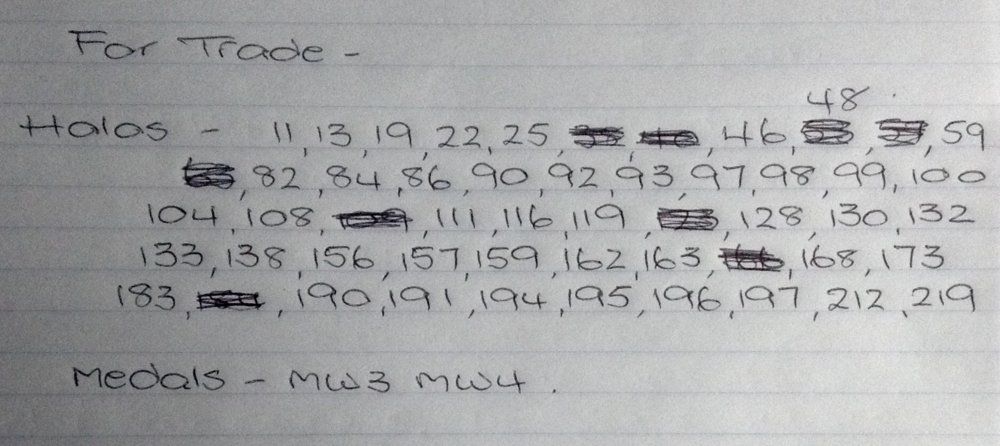 For Trade -
48
Halos - 11, 13, 19, 22, 25, , , 46, , , 59
, 82, 84, 86, 90, 92, 93, 97, 98, 99, 100
104, 108, , 111, 116, 119, , 128, 130, 132
133, 138, 156, 157, 159, 162, 163, , 168, 173
183, , 190, 191, 194, 195, 196, 197, 212, 219
Medals - MW3 MW4.